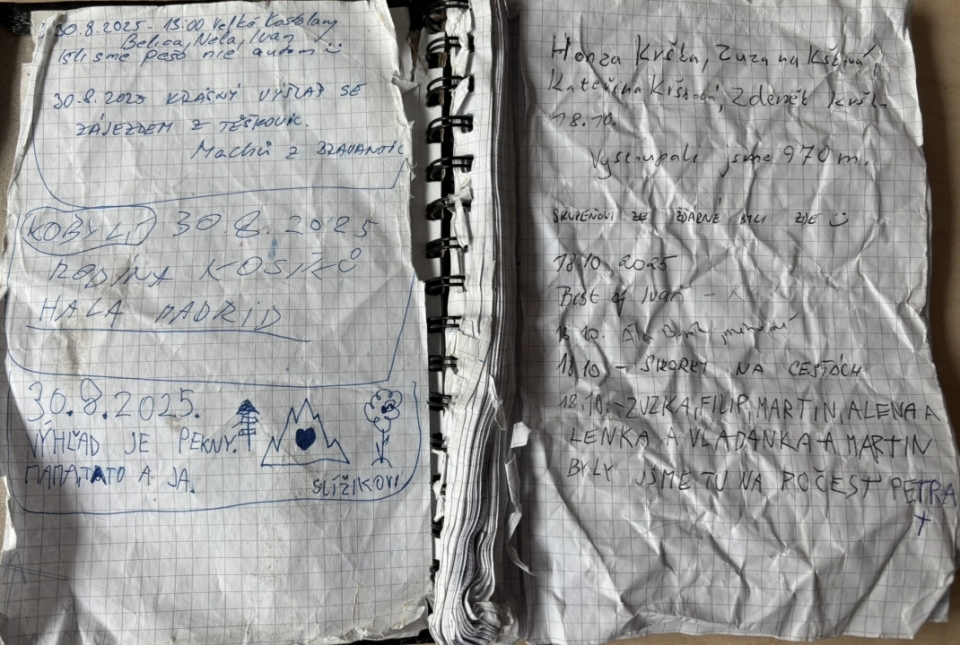 30.8.2025 - 13:00 Veľké Kostoľany
Belica, Nela, Ivan
Išli sme pešo nie autom
30.8.2025 KRÁSNÝ VÝŠLAP SE
ZÁJEZDEM Z TĚŠKOVIC.
Machů z
KOBYLÍ 30.8.2025
RODINA KOSÍKŮ
HALA MADRID
30.8.2025.
VÝHĽAD JE PEKNÝ.
MAMATATO A JA.
SLÍŽIKOVI
Honza Krška, Zuzana Kršková,
Kateřina Kršková, Zdeněk Krška
18.10.
Vystoupali jsme 970 m.
ZE ŽDÁRNÉ BYLI ZDE
18.10.2025
Best of Ivan -
18.10.
18.10 - SÝKORKY NA CESTÁCH
18.10. - ZUZKA, FILIP, MARTIN, ALENA A
LENKA A VLADANKA A MARTIN
BYLY JSME TU NA POČEST PETRA